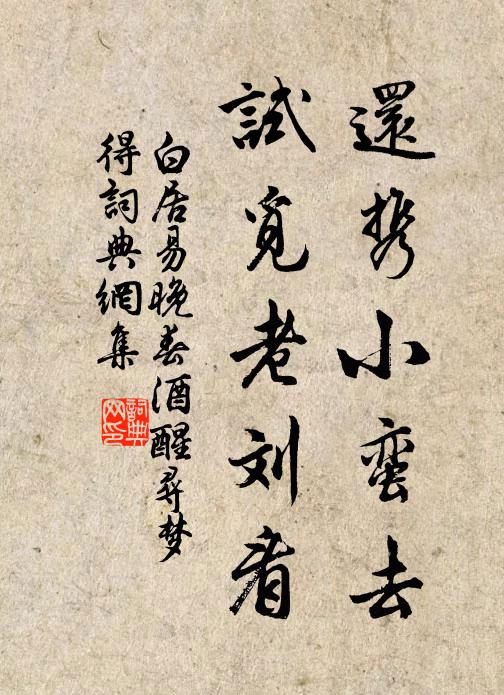 還携小蛮去
試覓老刘看
白居易晚春酒醒尋梦
得詞典網集
詞典
网印